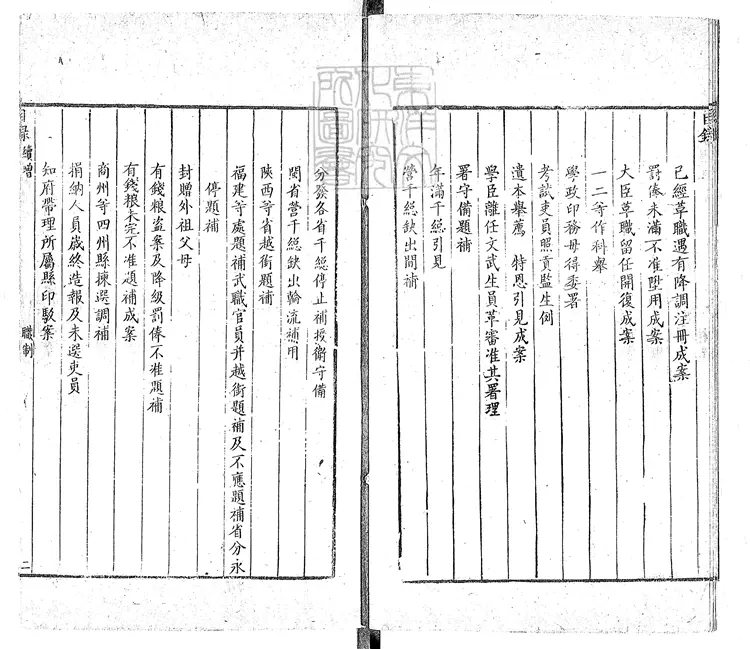 目錄
已經革職遇有降調注冊成案
罰俸未滿不准陞用成案
大臣革職留任開復成案
一二等作科舉
學政印務毋得委署
考試吏員照貢監生例
遺本舉薦 特恩引見成案
學臣離任文武生員革審准其署理
署守備題補
年滿千總引見
營千總缺出間補
分發各省千總停止補授衛守備
閩省營千總缺出輪流補用
陝西等省越銜題補
福建等處題補武職官員并越銜題補及不應題補省分永
停題補
封贈外祖父母
有錢粮盗案及降級罰俸不准題補
有錢粮未完不准題補成案
商州等四州縣揀選調補
捐納人員歲終造報及未選吏員
知府帶理所屬縣印駁案
目錄 續增 職制 二